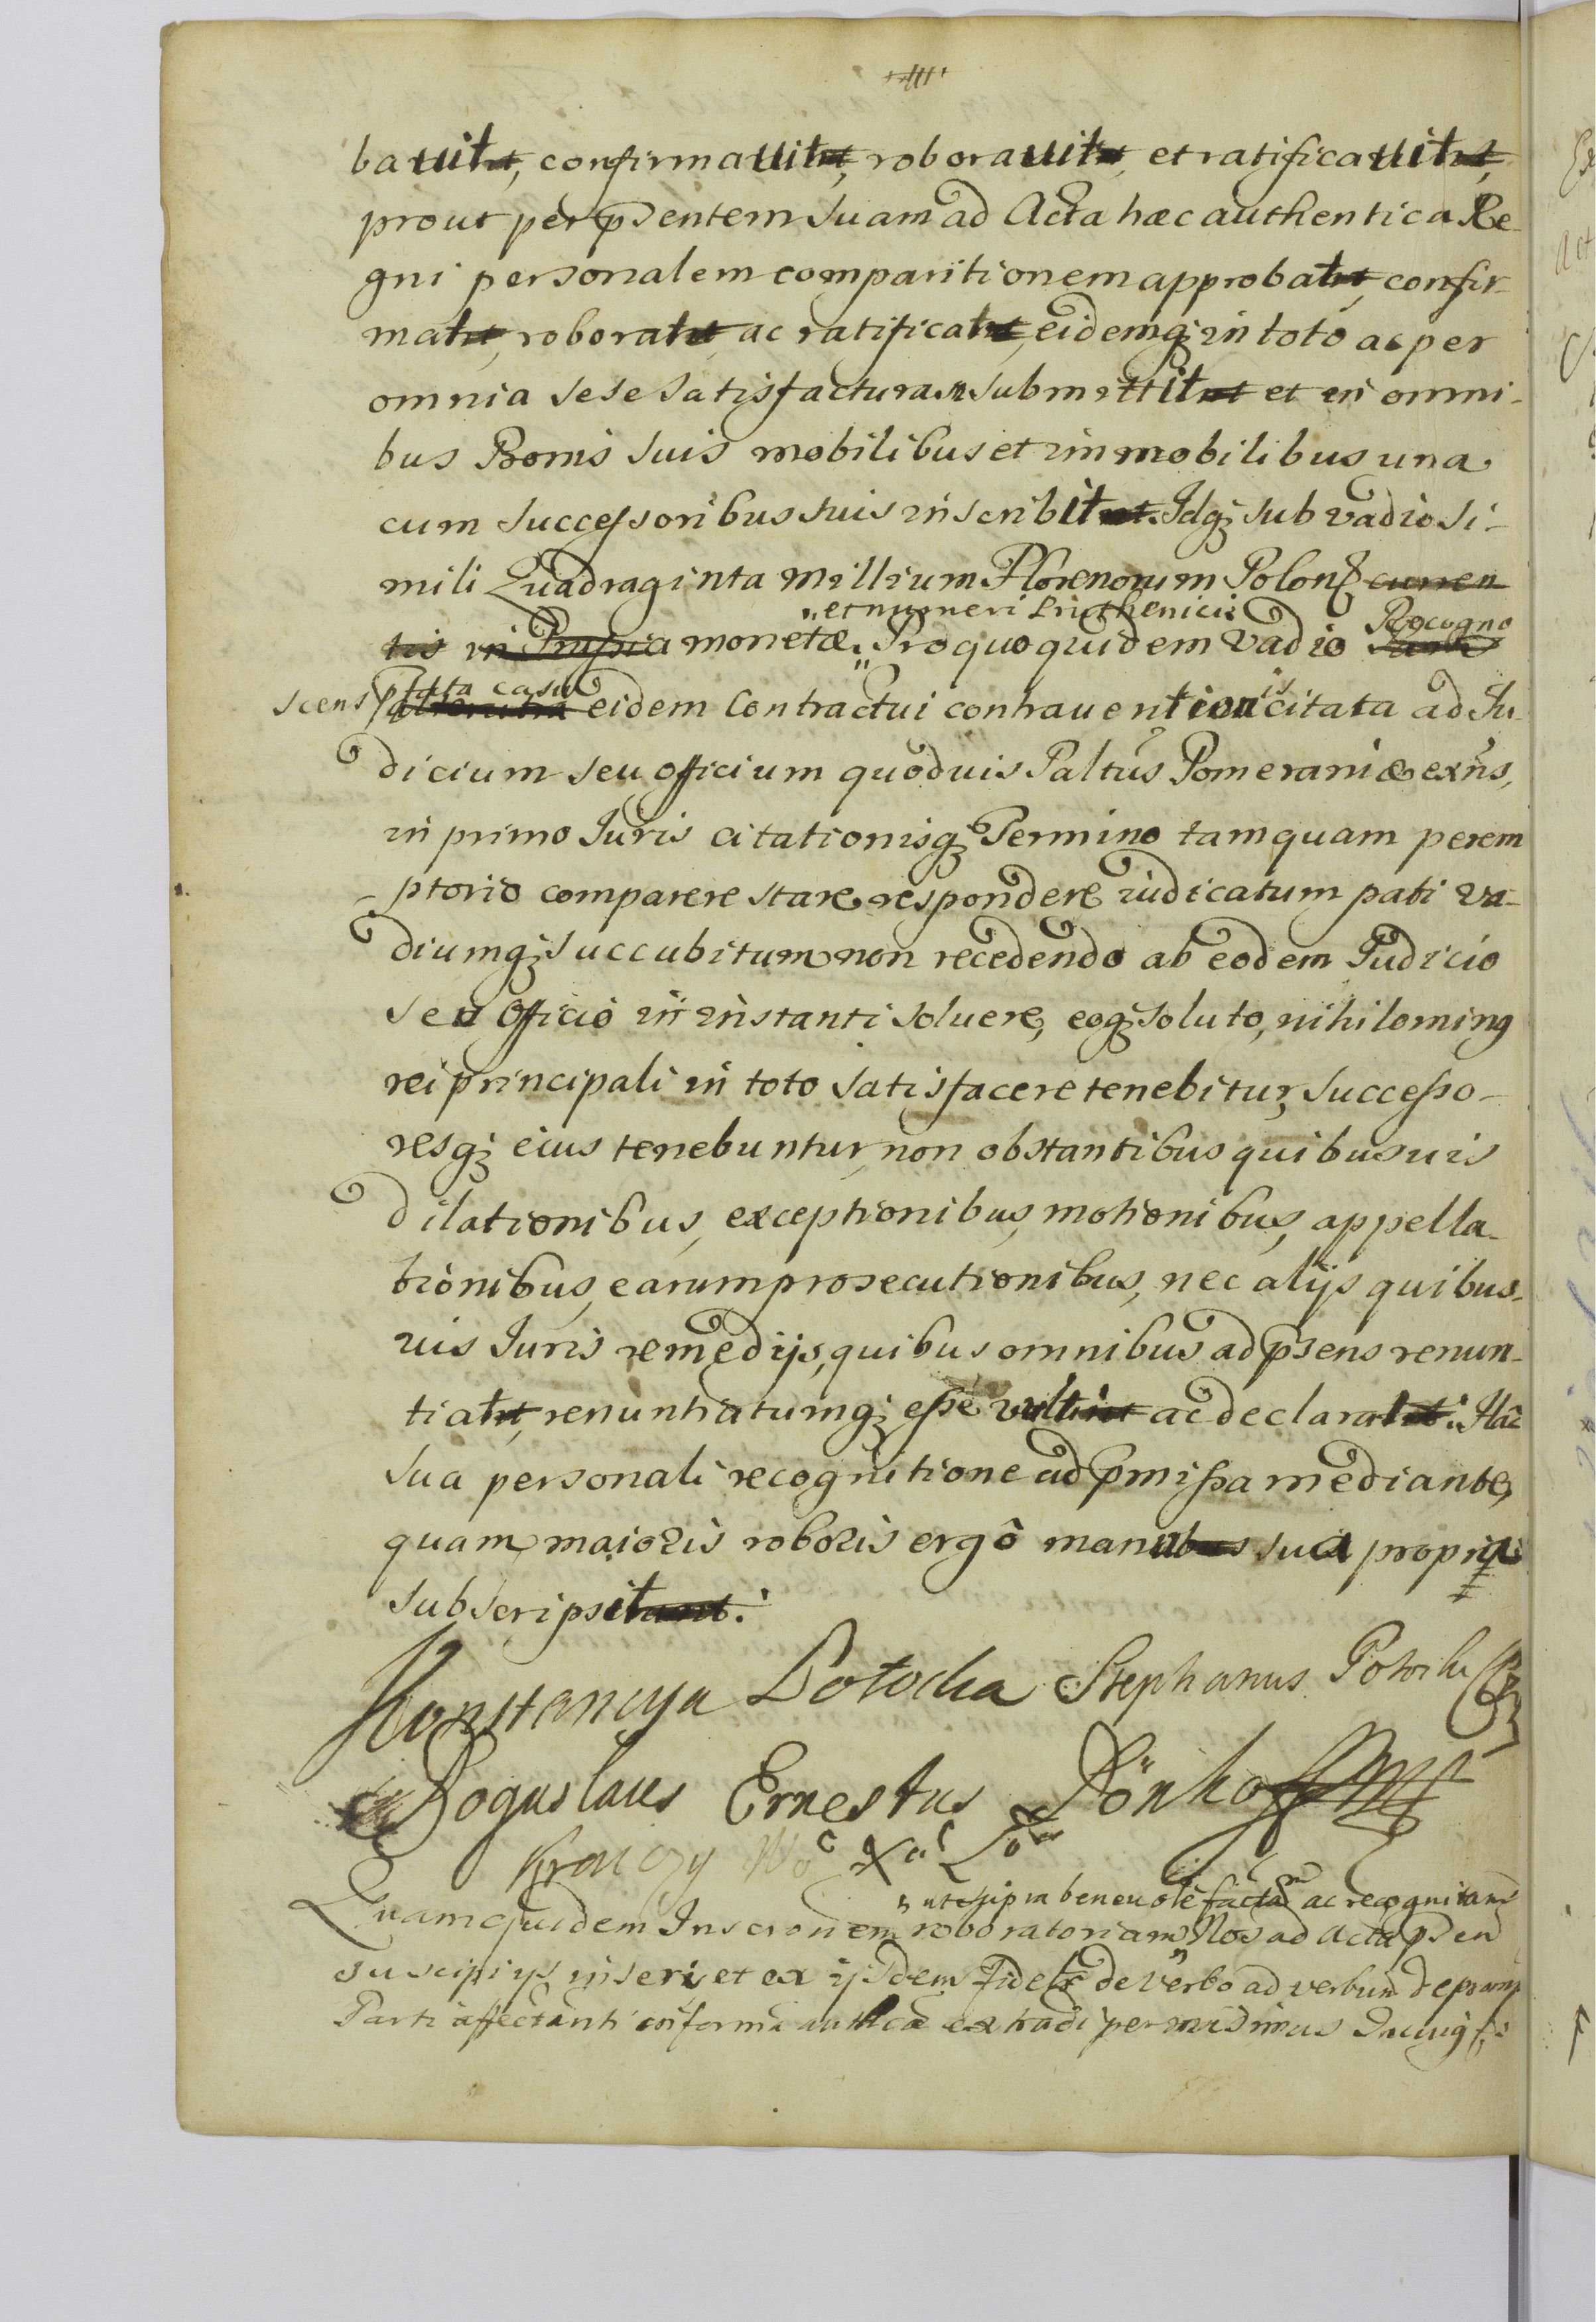 bauit, confirmauit, roborauit, et ratificauit,
prout per p̄sentem suam ad Acta hæc authentica Re-
gni personalem comparitionem approbat, confir-
mat, roborat, ac ratificat, eidemq; in toto ac per
omnia sese satisfacturam submittit et in omni-
bus Bonis suis mobilibus et immobilibus una
cum successoribus suis inscribit. Idq; sub vadio si-
mili Quadraginta millium Florenorum Polon: curren
et numeri Pruthenici
tis in Prussia monetæ. Pro quo quidem vadio Recogno
scens p̄fata casu eidem Contractui contrauentionis citata ad Iu-
dicium seu officium quoduis Paltus Pomeraniæ exn̄s,
in primo Iuris citationisq; Termino tamquam perem
ptorio comparere stare respondere iudicatum pati va-
diumq; succubitum non recedendo ab eodem Iudicio
seu Officio in instanti soluere, eoq; soluto, nihilominq
rei principali in toto satisfacere tenebitur, successo-
resq; eius tenebuntur, non obstantibus quibusuis
dilationibus, exceptionibus, motionibus, appella-
tionibus, earum prosecutionibus, nec alijs quibus-
uis Iuris remedijs, quibus omnibus ad p̄sens renun-
tiat, renuntiatumq; esse vult ac declarat. Hac
sua personali recognitione ad p̄missa mediante,
quam maioris roboris ergô manu sua propria
subscripsit.
Konstancya Potocka Stephanus Potocki
Boguslaus Ernestus Dönhoff
ut sup̄ra beneuole factam ac recognitam
Quam quidem Inscronem roboratoriam Nos ad Acta p̄sen
suscipi ijs inseri et ex ijsdem Fideli de verbo ad verbum
Parti affectanti in forma extradi permisimus